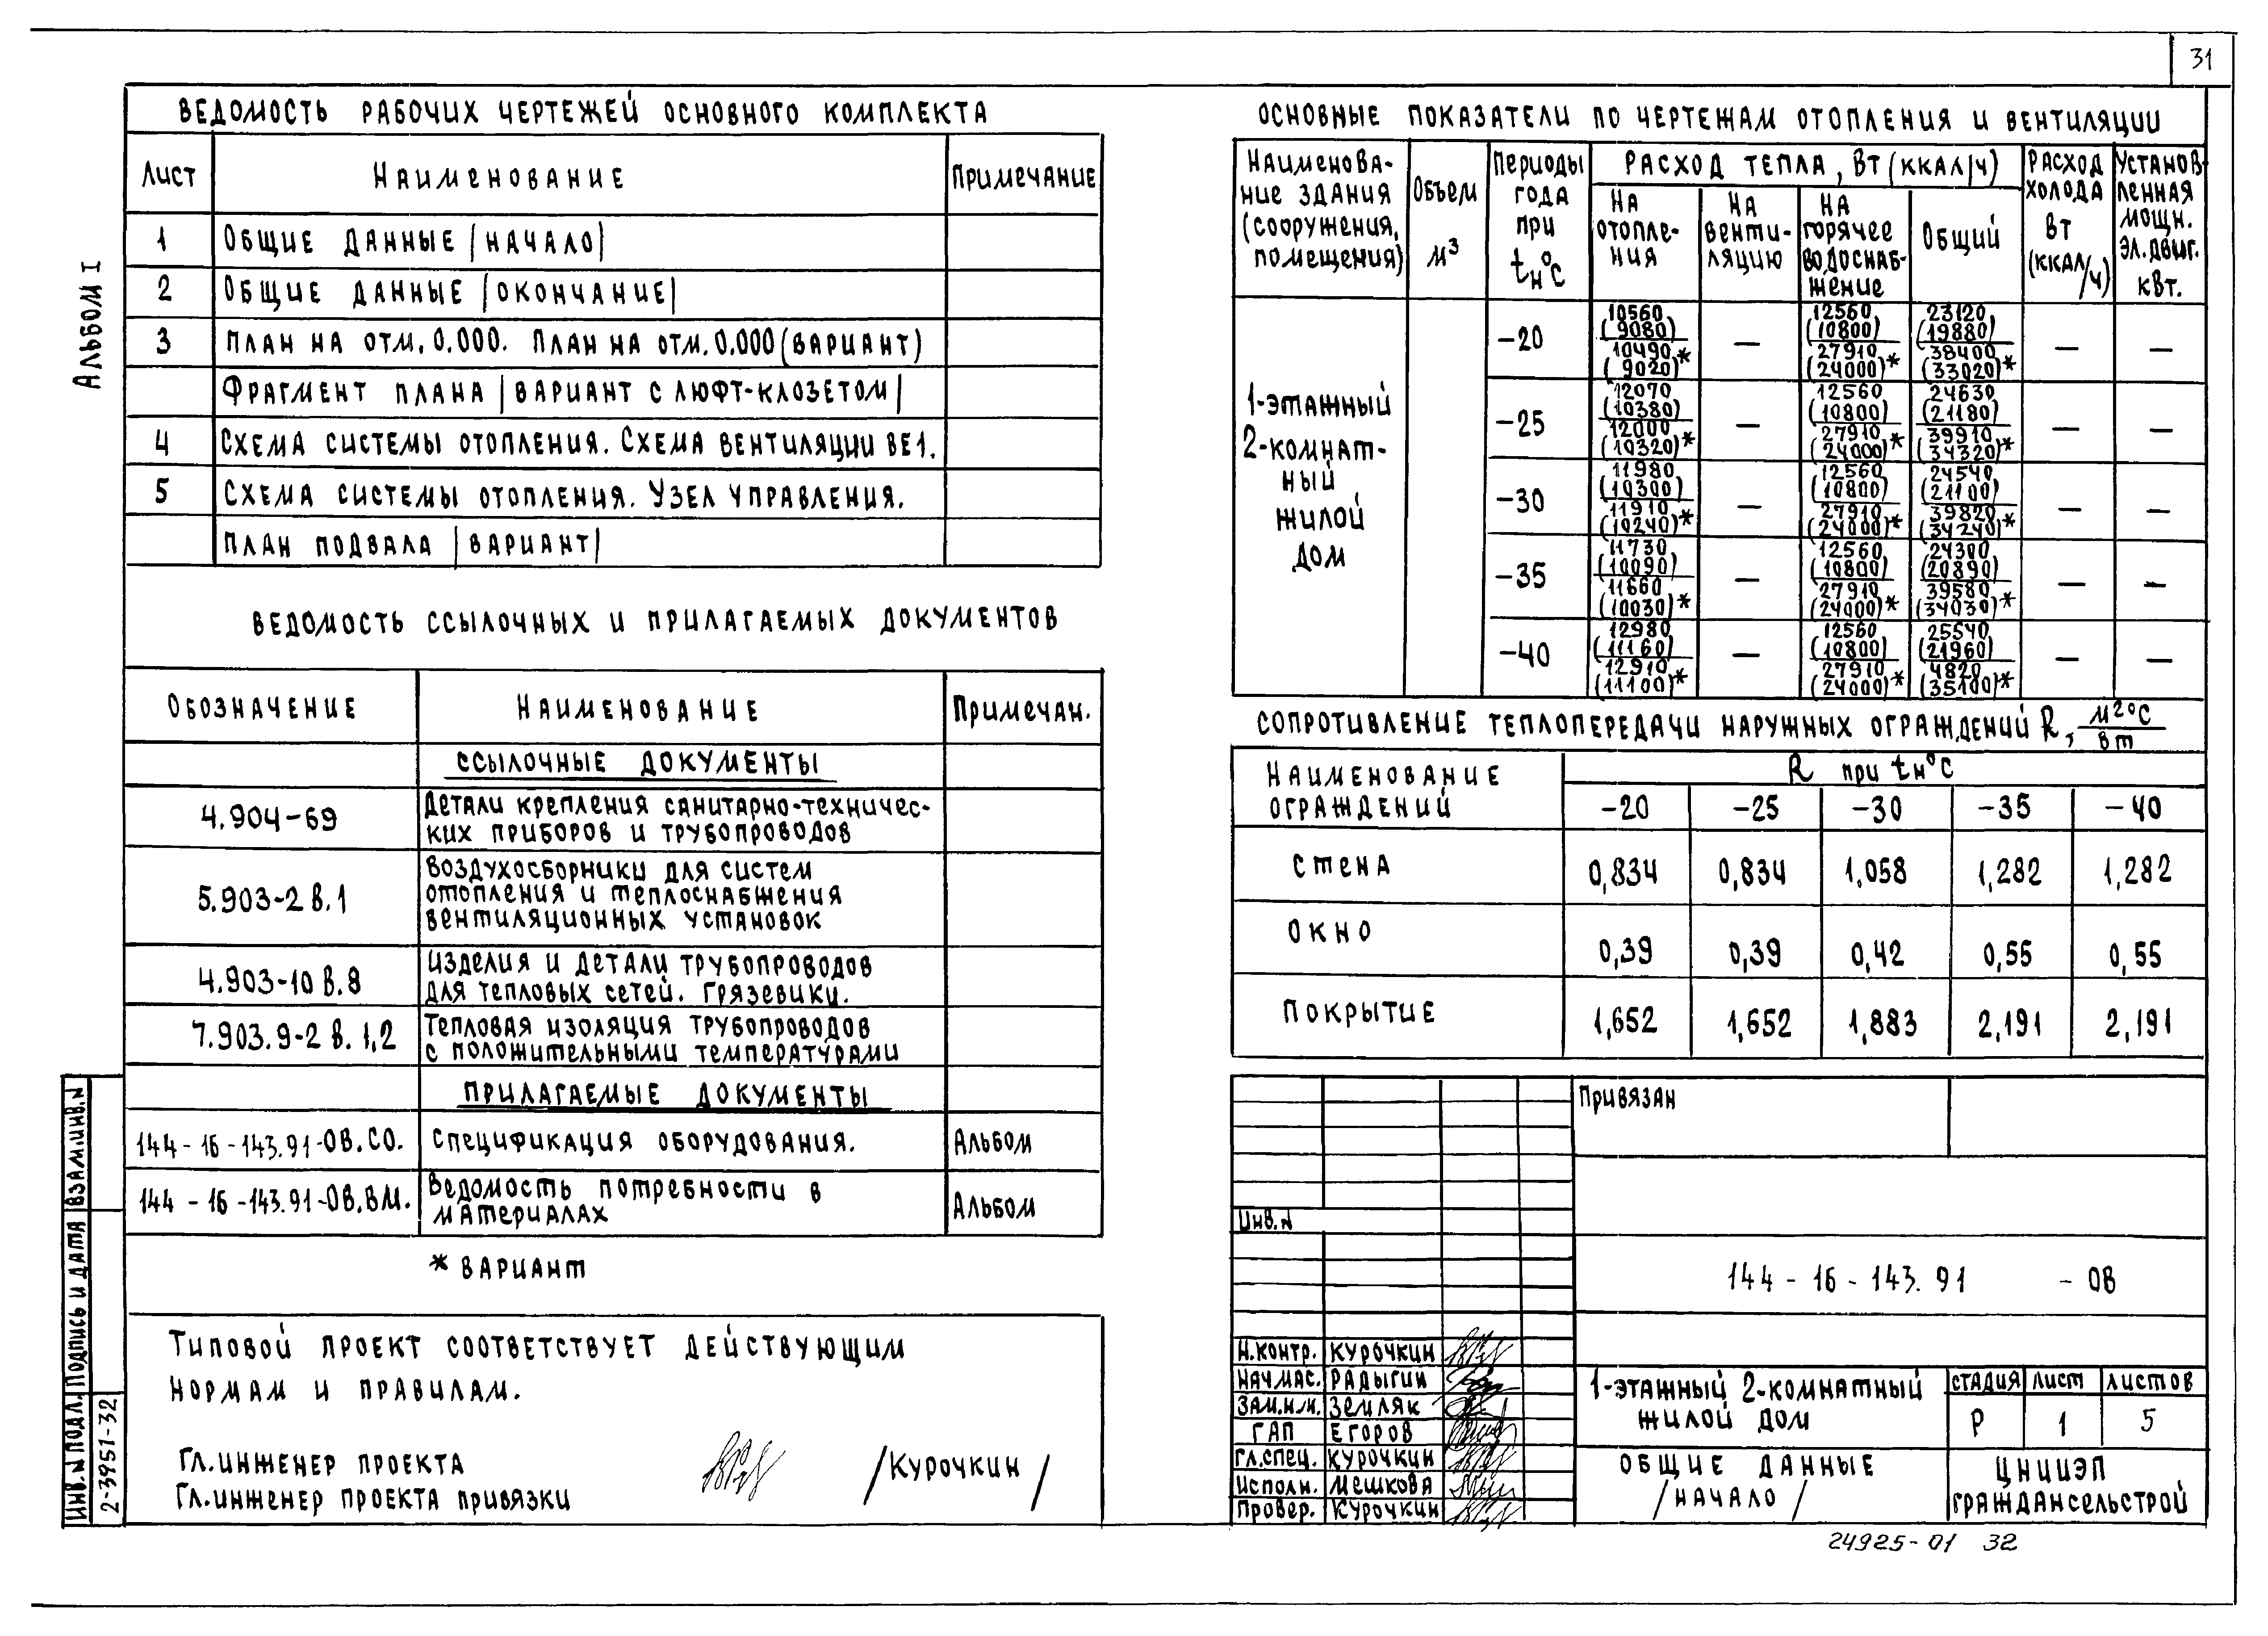 31
Альбом I
Ведомость рабочих чертежей основного комплекта
Лист Наименование Примечание
1 Общие данные /начало/
2 Общие данные /окончание/
3 План на отм. 0.000. План на отм. 0.000 (вариант)
Фрагмент плана /вариант с люфт-клозетом/
4 Схема системы отопления. Схема вентиляции ВЕ1.
5 Схема системы отопления. Узел управления.
План подвала /вариант/
Ведомость ссылочных и прилагаемых документов
Обозначение Наименование Примечан.
Ссылочные документы
4.904-69 Детали крепления санитарно-техничес-
ких приборов и трубопроводов
5.903-2 в.1 Воздухосборники для систем
отопления и теплоснабжения
вентиляционных установок
4.903-10 в.8 Изделия и детали трубопроводов
для тепловых сетей. Грязевики.
7.903.9-2 в. 1,2 Тепловая изоляция трубопроводов
с положительными температурами
Прилагаемые документы
144-16-143.91-ОВ.СО. Спецификация оборудования. Альбом
144-16-143.91-ОВ.ВМ. Ведомость потребности в
материалах Альбом
* вариант
Типовой проект соответствует действующим
нормам и правилам.
Гл.инженер проекта /Курочкин/
Гл.инженер проекта привязки
Инв.N подл. Подпись и дата Взам.инв.N
2-3951-32
Основные показатели по чертежам отопления и вентиляции
Наименова-
ние здания
(сооружения,
помещения)
Объем
м³
Периоды
года
при
tн°С
Расход тепла, Вт (ккал/ч)
На
отопле-
ния
На
венти-
ляцию
На
горячее
водоснаб-
жение
Общий
Расход
холода
Вт
(ккал/ч)
Установ-
ленная
мощн.
эл.двиг.
кВт.
1-этажный
2-комнат-
ный
жилой
дом
-20 10560 (9080) — 12560 (10800) 23120 (19880) — —
10490 (9020)* 27910 (24000)* 38400 (33020)*
-25 12070 (10380) — 12560 (10800) 24630 (21180) — —
12000 (10320)* 27910 (24000)* 39910 (34320)*
-30 11980 (10300) — 12560 (10800) 24540 (21100) — —
11910 (10240)* 27910 (24000)* 39820 (34240)*
-35 11730 (10090) — 12560 (10800) 24300 (20890) — —
11660 (10030)* 27910 (24000)* 39580 (34030)*
-40 12980 (11160) — 12560 (10800) 25540 (21960) — —
12910 (11100)* 27910 (24000)* 4820 (35100)*
Сопротивление теплопередачи наружных ограждений R, м²°С/Вт
Наименование
ограждений
R при tн°С
-20 -25 -30 -35 -40
Стена 0,834 0,834 1,058 1,282 1,282
Окно 0,39 0,39 0,42 0,55 0,55
Покрытие 1,652 1,652 1,883 2,191 2,191
Привязан
Инв.N
144-16-143.91 -ОВ
Н.контр. Курочкин
Нач.мас. Радыгин
Зам.н.м. Земляк
ГАП Егоров
Гл.спец. Курочкин
Исполн. Мешкова
Провер. Курочкин
1-этажный 2-комнатный
жилой дом
Стадия Лист Листов
Р 1 5
Общие данные
/начало/
ЦНИИЭП
граждансельстрой
24925-01 32